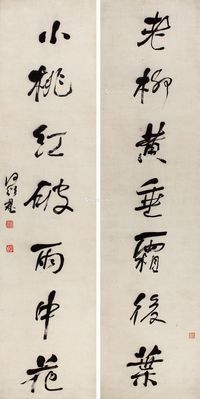 老柳黄垂霜後葉
小桃紅破雨中花